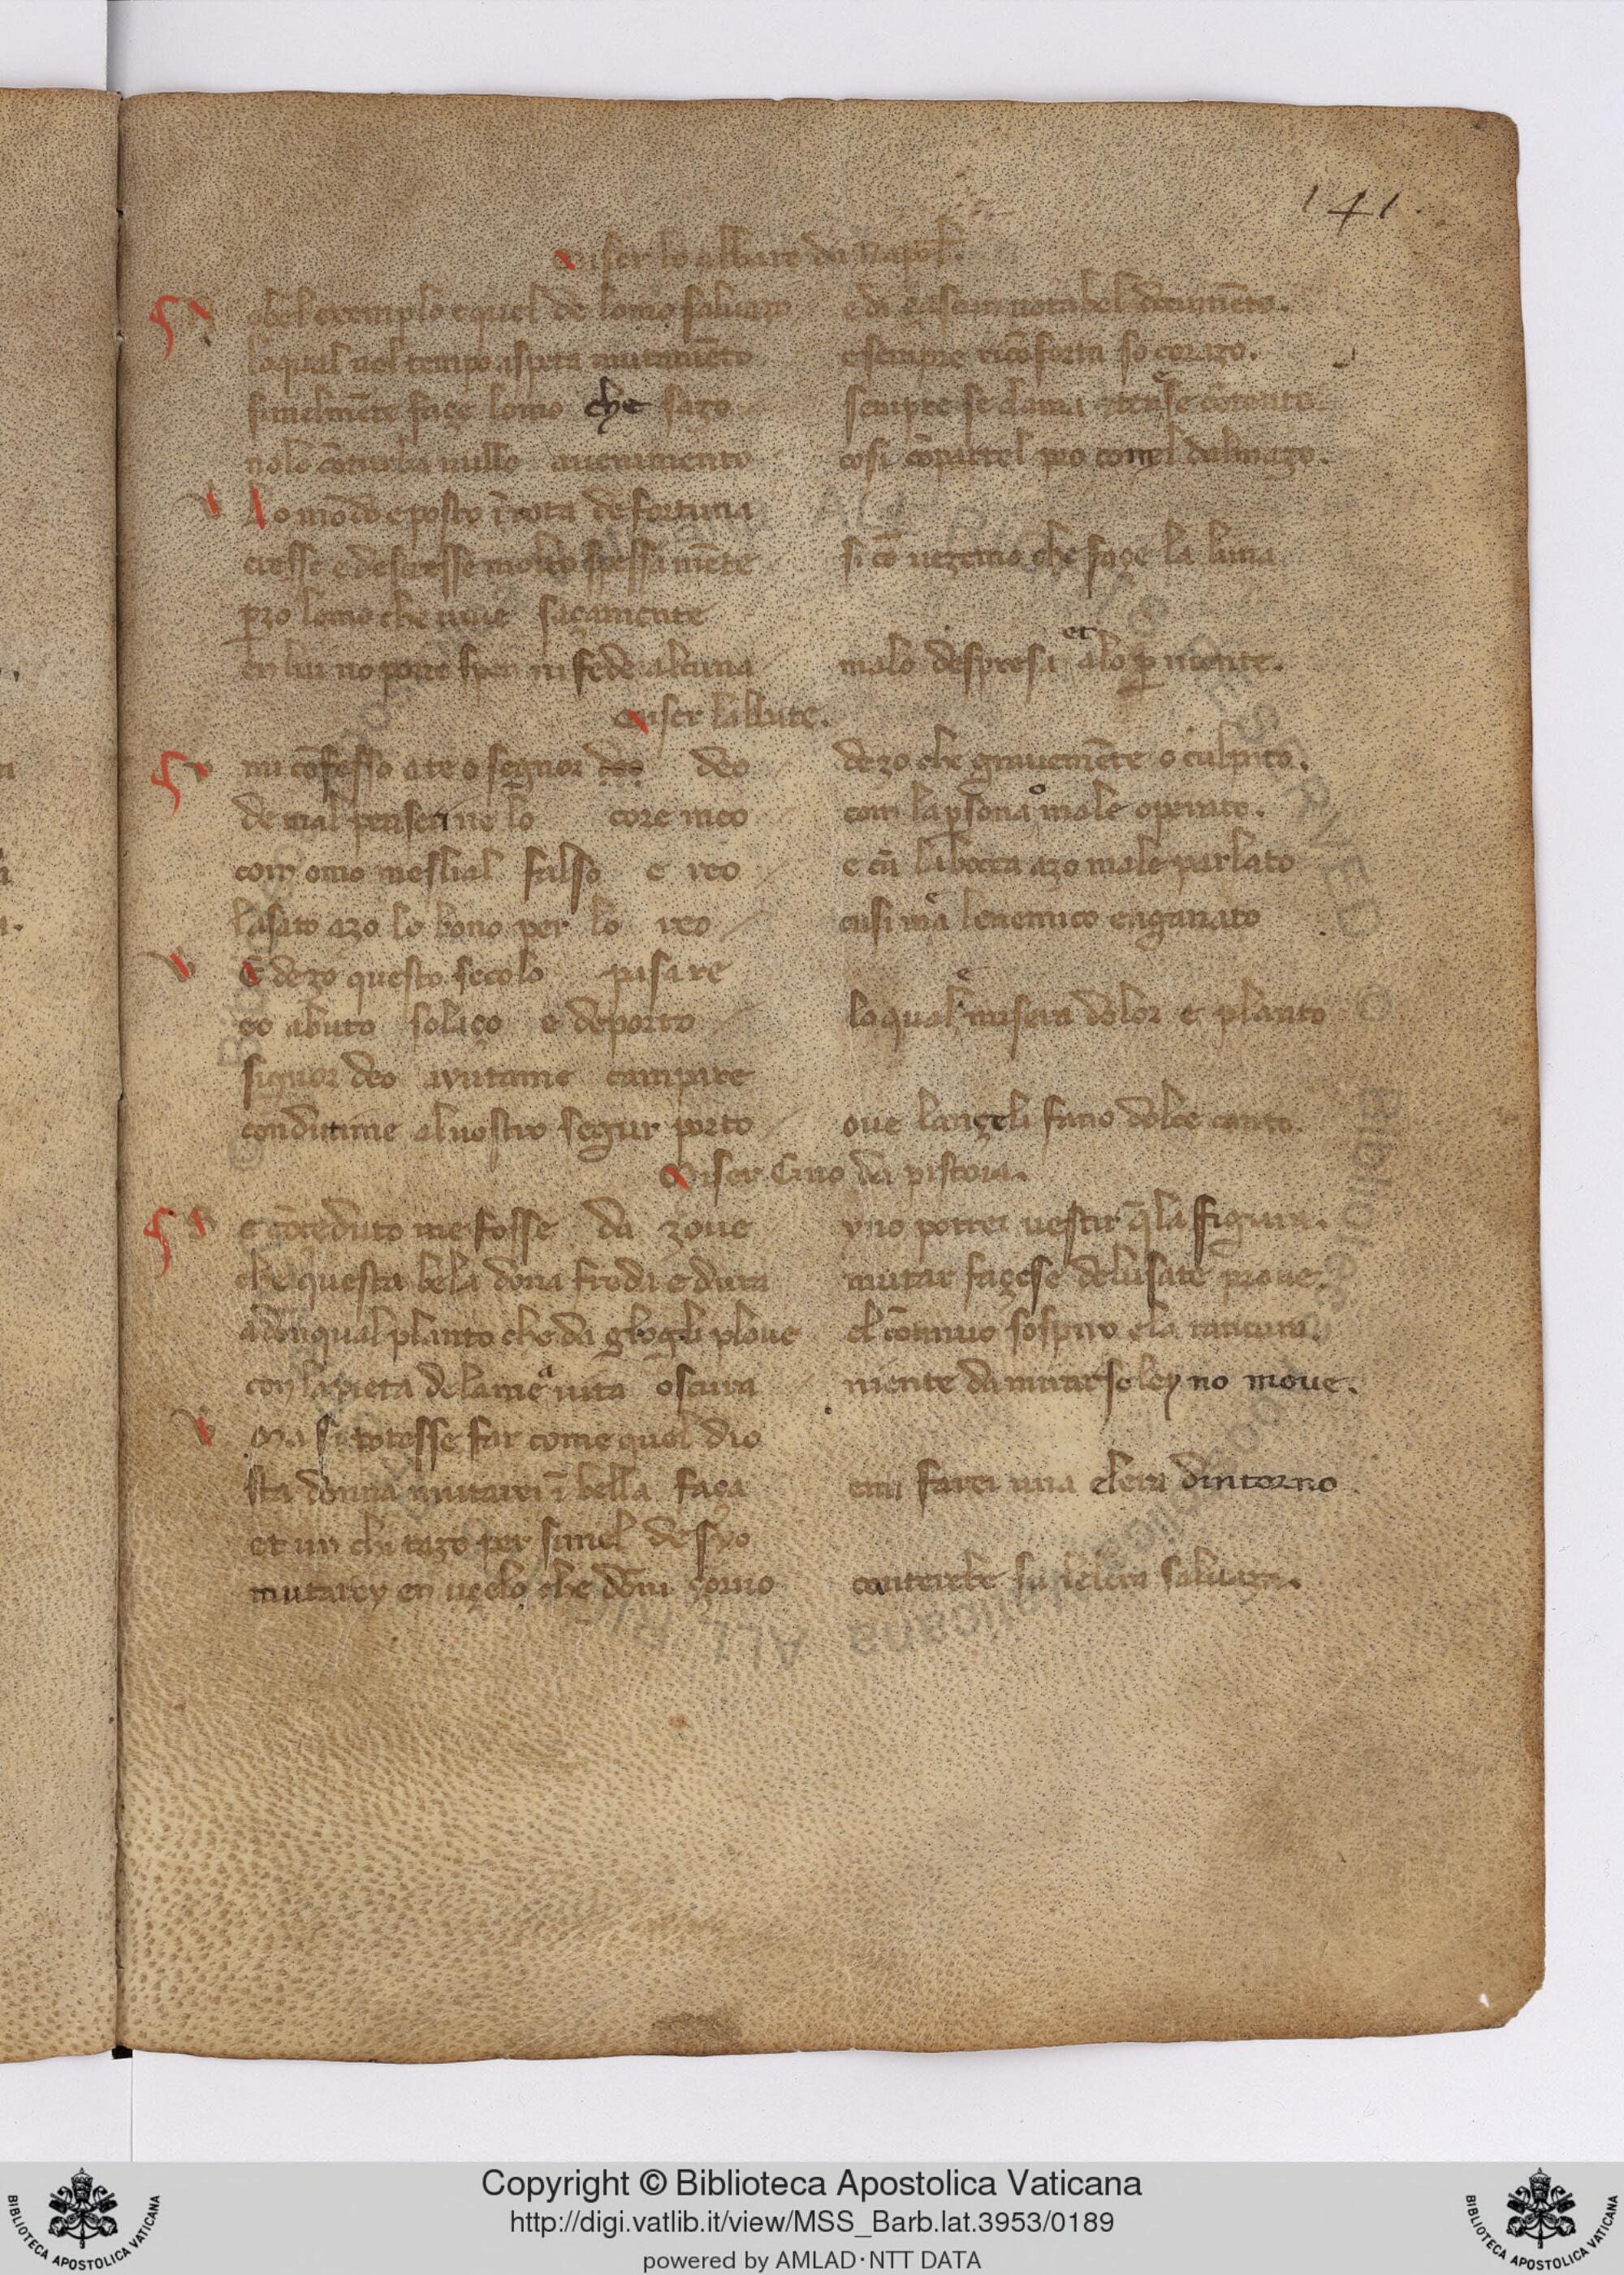 141
Miser lo abbate da Napol'.
Nobel exemplo e quel de lomo saluazo eda çascum notabel documēto.
loqual nel tempo aspeta mutamēto e sempre ricōforta so corazo.
simelmēte façe lomo che sazo sempre se
nolo cōturba nullo auenimento cosi cōpartel pro conel dalmazo.
Lo mōdo e posto ī rota de fortuna
cresse e descresse molto spessamēte si cō vezemo che façe la luna
perzo lomo che uiue saçamente
en lui no pone spen ni fede alcuna malo despresia et alo per niente.
Miser labbate.
mi cōfesso a te o segnor deo deo dezo che grauemēte o culpato.
de mal penser ne lo core meo com la persona o male operato.
com omo meslial falso e reo e cū la bocca azo male parlato
lasato azo lo bono per lo reo cusi ma lenemico enganato
E dezo questo secolo pasare
eo abuto solaço e deporto lo qual e misera dolor e planto
signor deo ayutame campare
condutime al uostro segur porto oue lançeli fano dolce canto.
Miser Cino da pistoia.
Se cōceduto me fosse da zoue yno potrei uestir q̄la figura.
che questa bela dona froda e dura mutar façese delusate proue.
adonqual planto che da glogli ploue el cōtinuo sospiro ela rancura.
con la pieta dela mea uita oscura niente da mutarse ley no moue.
Ma si potesse far come quel dio
sta donna mutarei ī bella faça emi farei una elera dintorno
et un chi tazo per simel desyo
mutarey en uçelo che dōni çorno canterebe su lelera saluaza.
Copyright © Biblioteca Apostolica Vaticana
http://digi.vatlib.it/view/MSS_Barb.lat.3953/0189
powered by AMLAD·NTT DATA
BIBLIOTECA APOSTOLICA VATICANA
BIBLIOTECA APOSTOLICA VATICANA